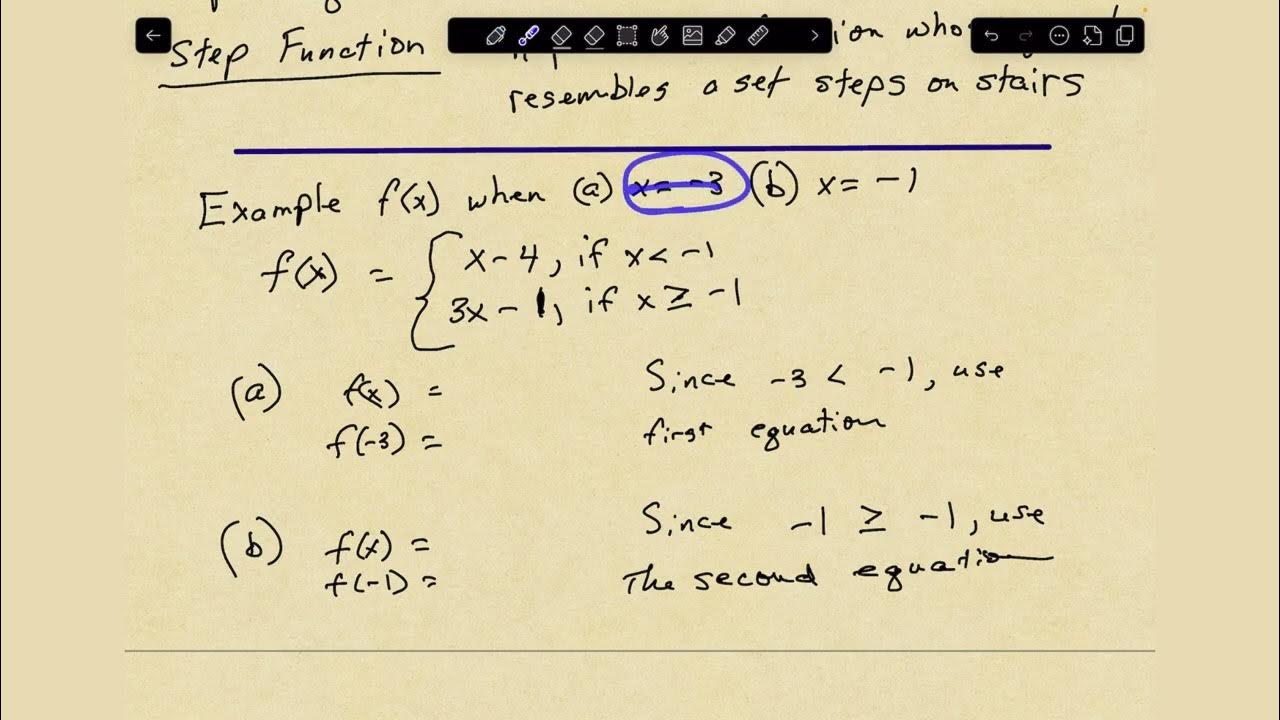 Step Function
resembles a set steps on stairs
Example f(x) when (a) x = -3 (b) x = -1
f(x) = { x - 4, if x < -1
3x - 1, if x ≥ -1
(a) f(x) = Since -3 < -1, use
f(-3) = first equation
(b) f(x) = Since -1 ≥ -1, use
f(-1) = The second equation